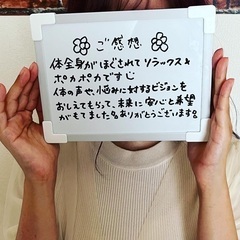 ご感想
体全身がほぐされてリラックス&
ポカポカです
体の声や、悩みに対するビジョンを
おしえてもらって、未来に安心と希望
がもてました。ありがとうございます。